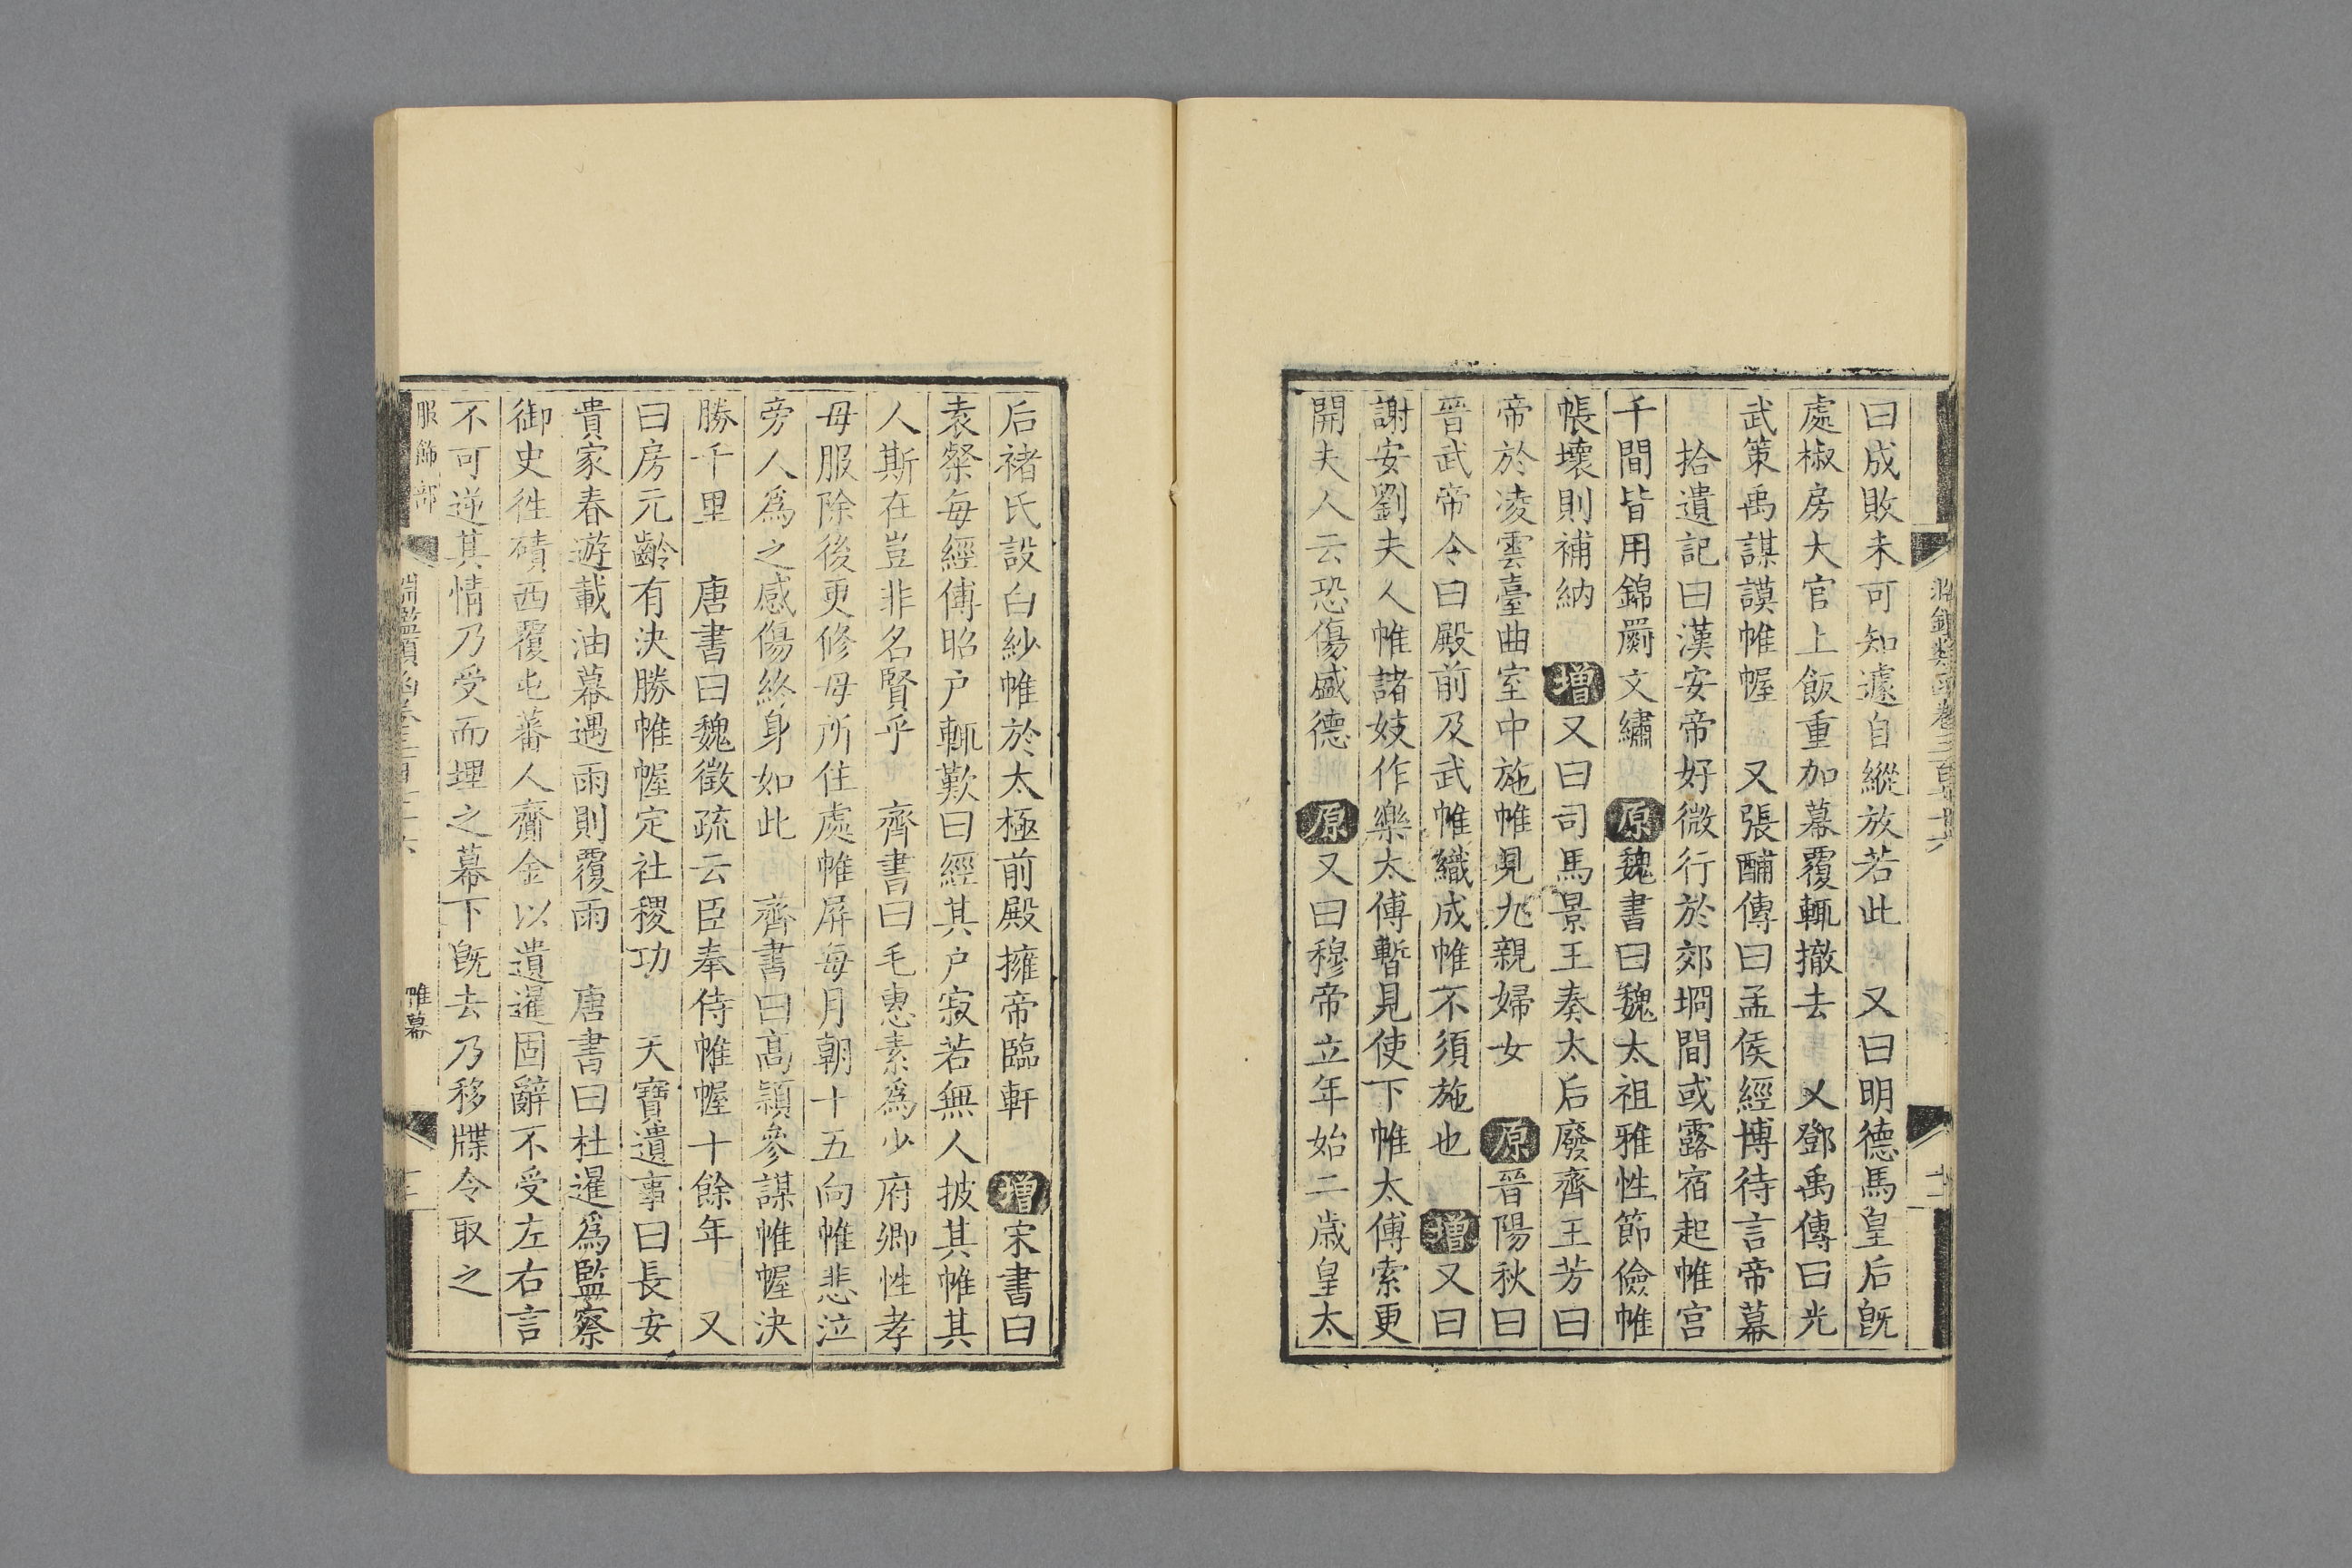 曰成敗未可知遽自縱放若此 又曰明德馬皇后旣
處椒房大官上飯重加幕覆輒撤去 又鄧禹傳曰光
武策禹謀謨帷幄 又張酺傳曰孟侯經博待言帝幕
拾遺記曰漢安帝好微行於郊坰間或露宿起帷宫
千間皆用錦罽文繡 原魏書曰魏太祖雅性節儉帷
帳壞則補納 增又曰司馬景王奏太后廢齊王芳曰
帝於凌雲臺曲室中施帷見九親婦女 原晉陽秋曰
晉武帝令曰殿前及武帷織成帷不須施也 增又曰
謝安劉夫人帷諸妓作樂太傅暫見使下帷太傅索更
開夫人云恐傷盛德 原又曰穆帝立年始二歲皇太
后禇氏設白紗帷於太極前殿擁帝臨軒 增宋書曰
袁粲每經傅昭户輒歎曰經其户寂若無人披其帷其
人斯在豈非名賢乎 齊書曰毛惠素爲少府卿性孝
母服除後更修母所住處帷屏每月朝十五向帷悲泣
旁人爲之感傷終身如此 齊書曰髙頴參謀帷幄決
勝千里 唐書曰魏徵疏云臣奉侍帷幄十餘年 又
曰房元齡有決勝帷幄定社稷功 天寶遺事曰長安
貴家春遊載油幕遇雨則覆雨 唐書曰杜暹爲監察
御史徃磧西覆屯蕃人齎金以遺暹固辭不受左右言
不可逆其情乃受而埋之幕下旣去乃移牒令取之
服飾部 淵鑑類函卷三百七十六 帷幕